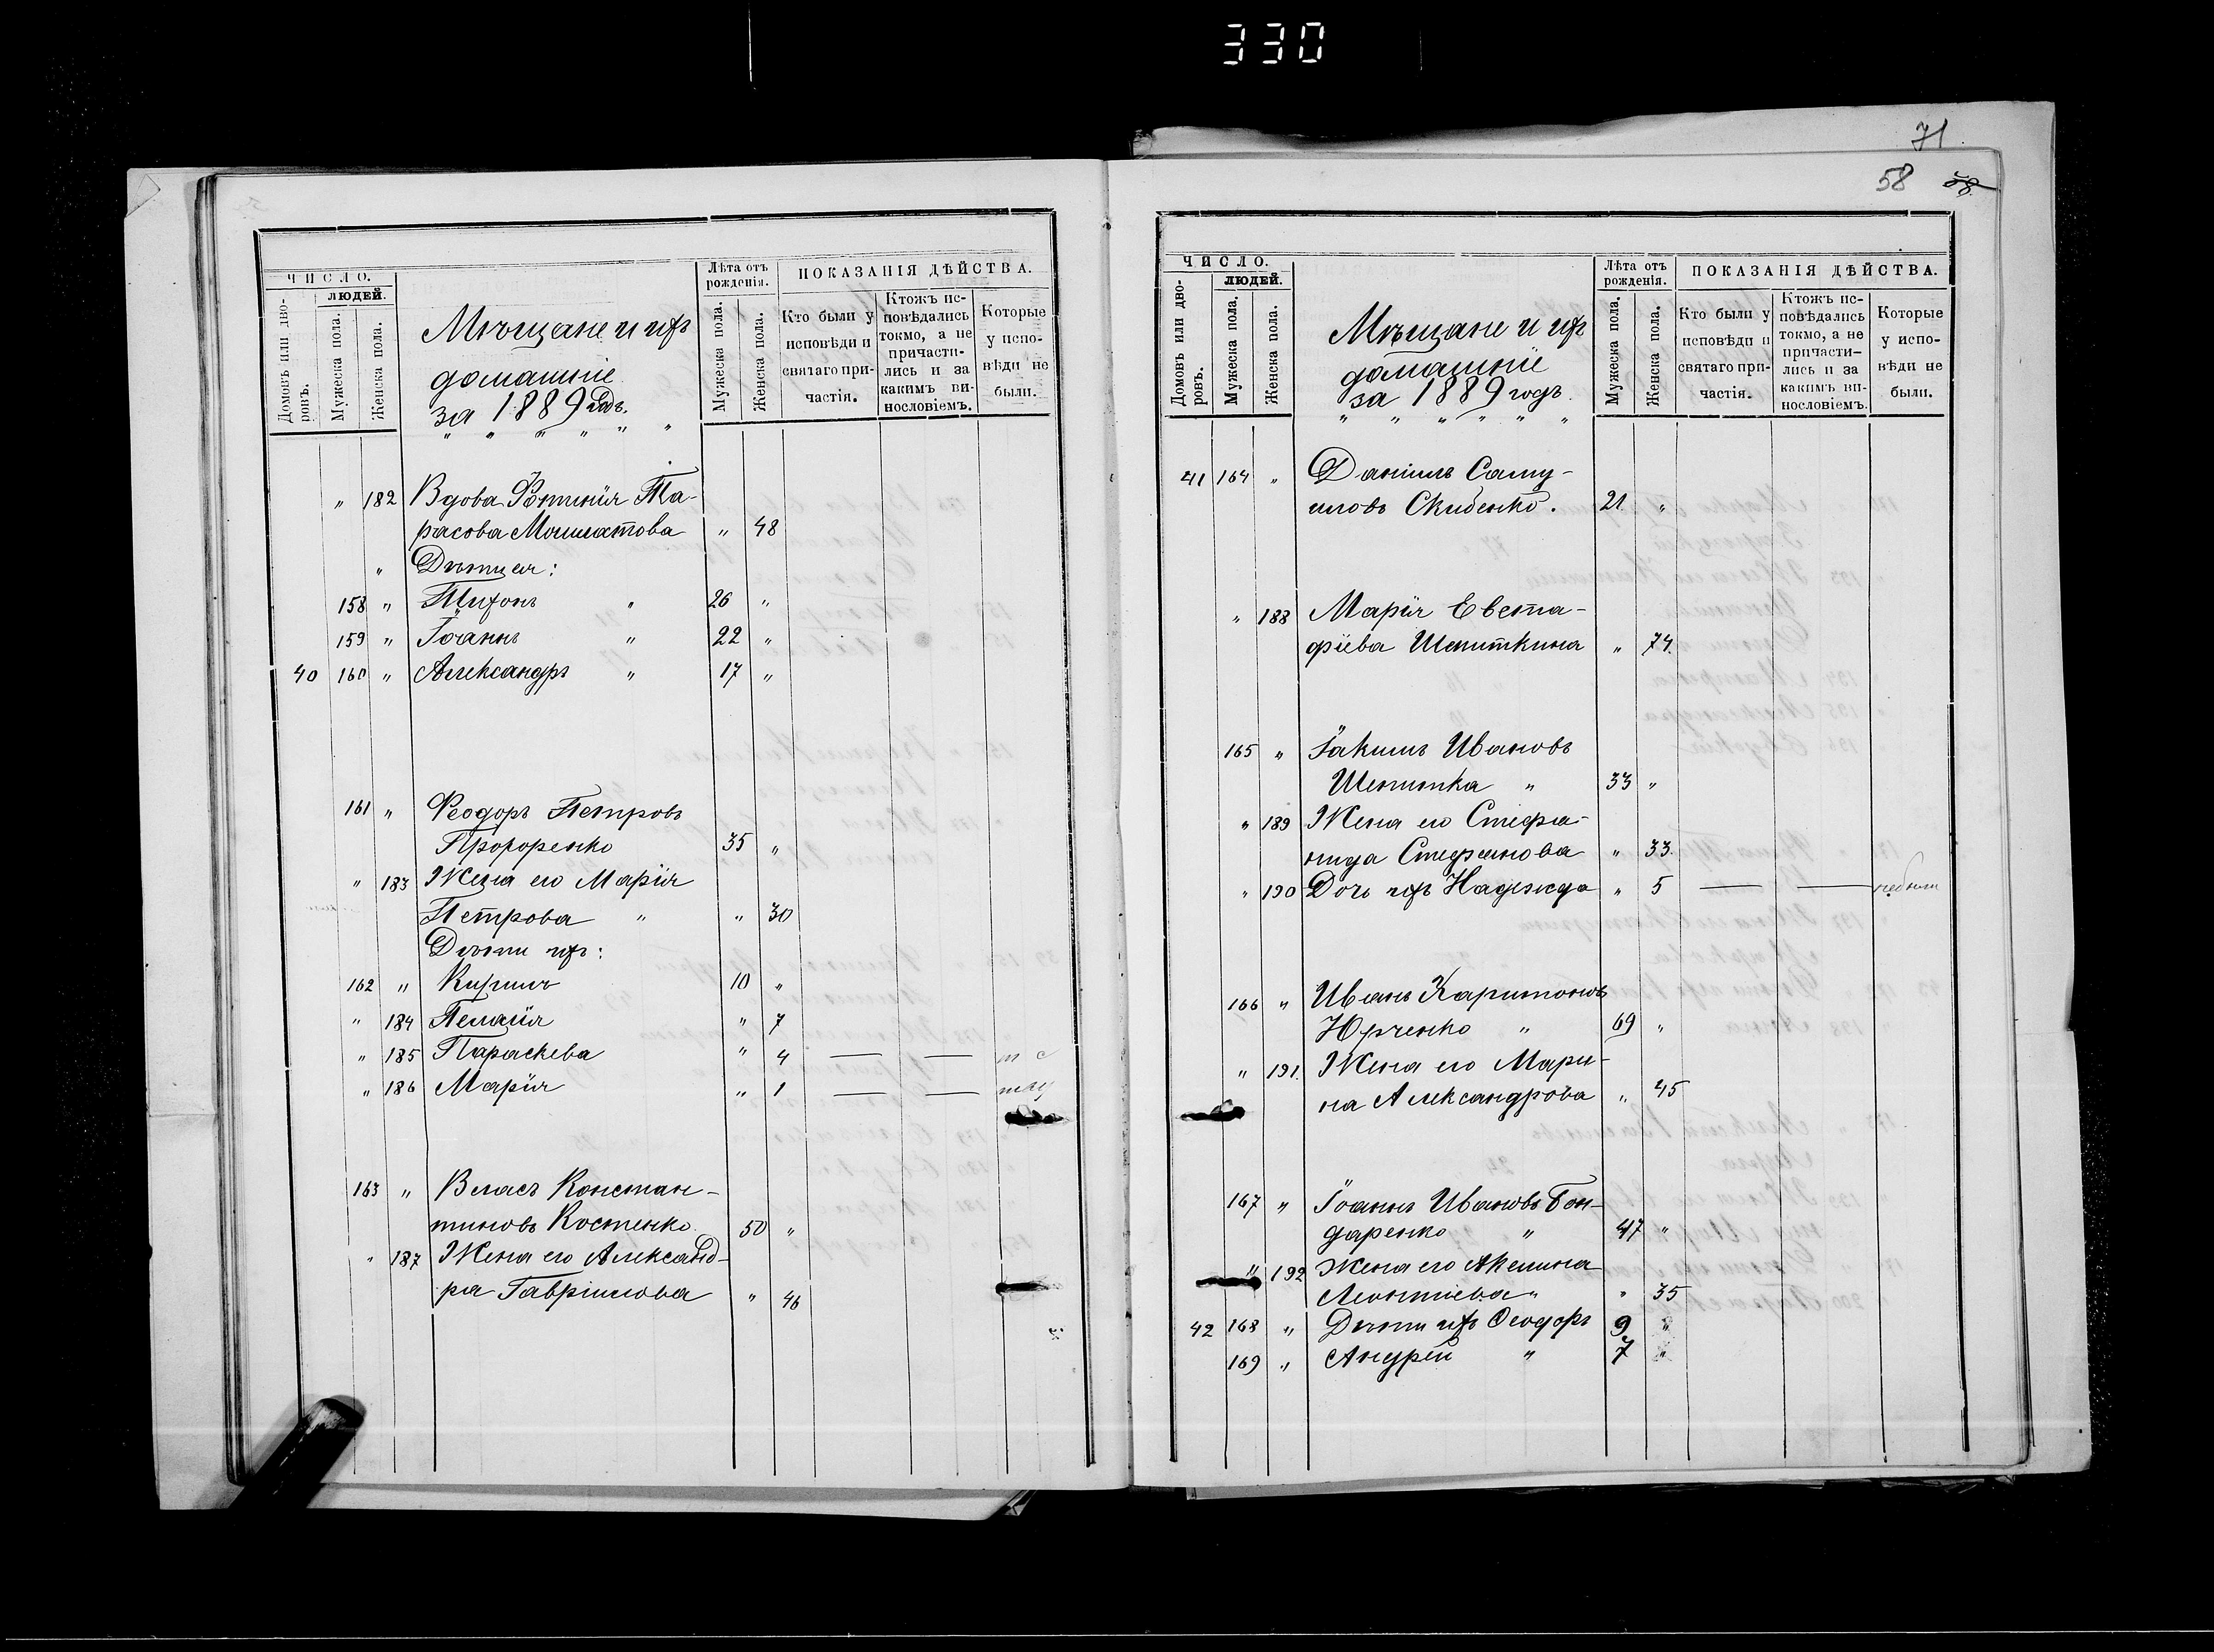 330
71
58 58
ЧИСЛО.
ЛЮДЕЙ.
Домовъ или дворовъ.
Мужеска пола.
Женска пола.
Мѣщане и ихъ
домашніе
за 1889 годъ.
Лѣта отъ
рожденія.
Мужеска пола.
Женска пола.
ПОКАЗАНІЯ ДѢЙСТВА.
Кто были у
исповѣди и
святаго при-
частія.
Ктожъ ис-
повѣдались
токмо, а не
причасти-
лись и за
какимъ ви-
нословіемъ.
Которые
у испо-
вѣди не
были.
" 182 Вдова Фотинія Та-
расова " 48
" Дѣти ея:
158 " Тихонъ " 26 "
159 " Іоаннъ " 22 "
40 160 " Александръ " 17 "
161 " Ѳеодоръ Петровъ
Прохоренко 35 "
" 183 Жена его Марія
Петрова " " 30
Дѣти ихъ:
162 " Кирилъ 10 "
" 184 Пелагія " 7
" 185 Параскева " 4 — —
" 186 Марія " 1 — —
163 " Власъ Констан-
тиновъ Костенко 50 "
" 187 Жена его Александ-
ра Гавріилова " 46
ЧИСЛО.
ЛЮДЕЙ.
Домовъ или дворовъ.
Мужеска пола.
Женска пола.
Мѣщане и ихъ
домашніе
за 1889 годъ.
Лѣта отъ
рожденія.
Мужеска пола.
Женска пола.
ПОКАЗАНІЯ ДѢЙСТВА.
Кто были у
исповѣди и
святаго при-
частія.
Ктожъ ис-
повѣдались
токмо, а не
причасти-
лись и за
какимъ ви-
нословіемъ.
Которые
у испо-
вѣди не
были.
41 164 " Даніилъ Саму-
иловъ Скибенко. 21 "
" 188 Марія Евста-
фіева Шепиткина " 74.
165 " Іакимъ Ивановъ
Шепитка " 33 "
" 189 Жена его Стефа-
нида Стефанова " 33.
" 190 Дочь ихъ Надежда " 5 — — не были
166 " Иванъ Харитоновъ
Юрченко " 69 "
" 191. Жена его Мари-
на Александрова " 45
167 " Іоаннъ Ивановъ Бон-
даренко " 47 "
" 192 Жена его Акилина
Леонтіева " " 35
42 168 " Дѣти ихъ Ѳеодоръ 9 "
169 " Андрей " 7 "